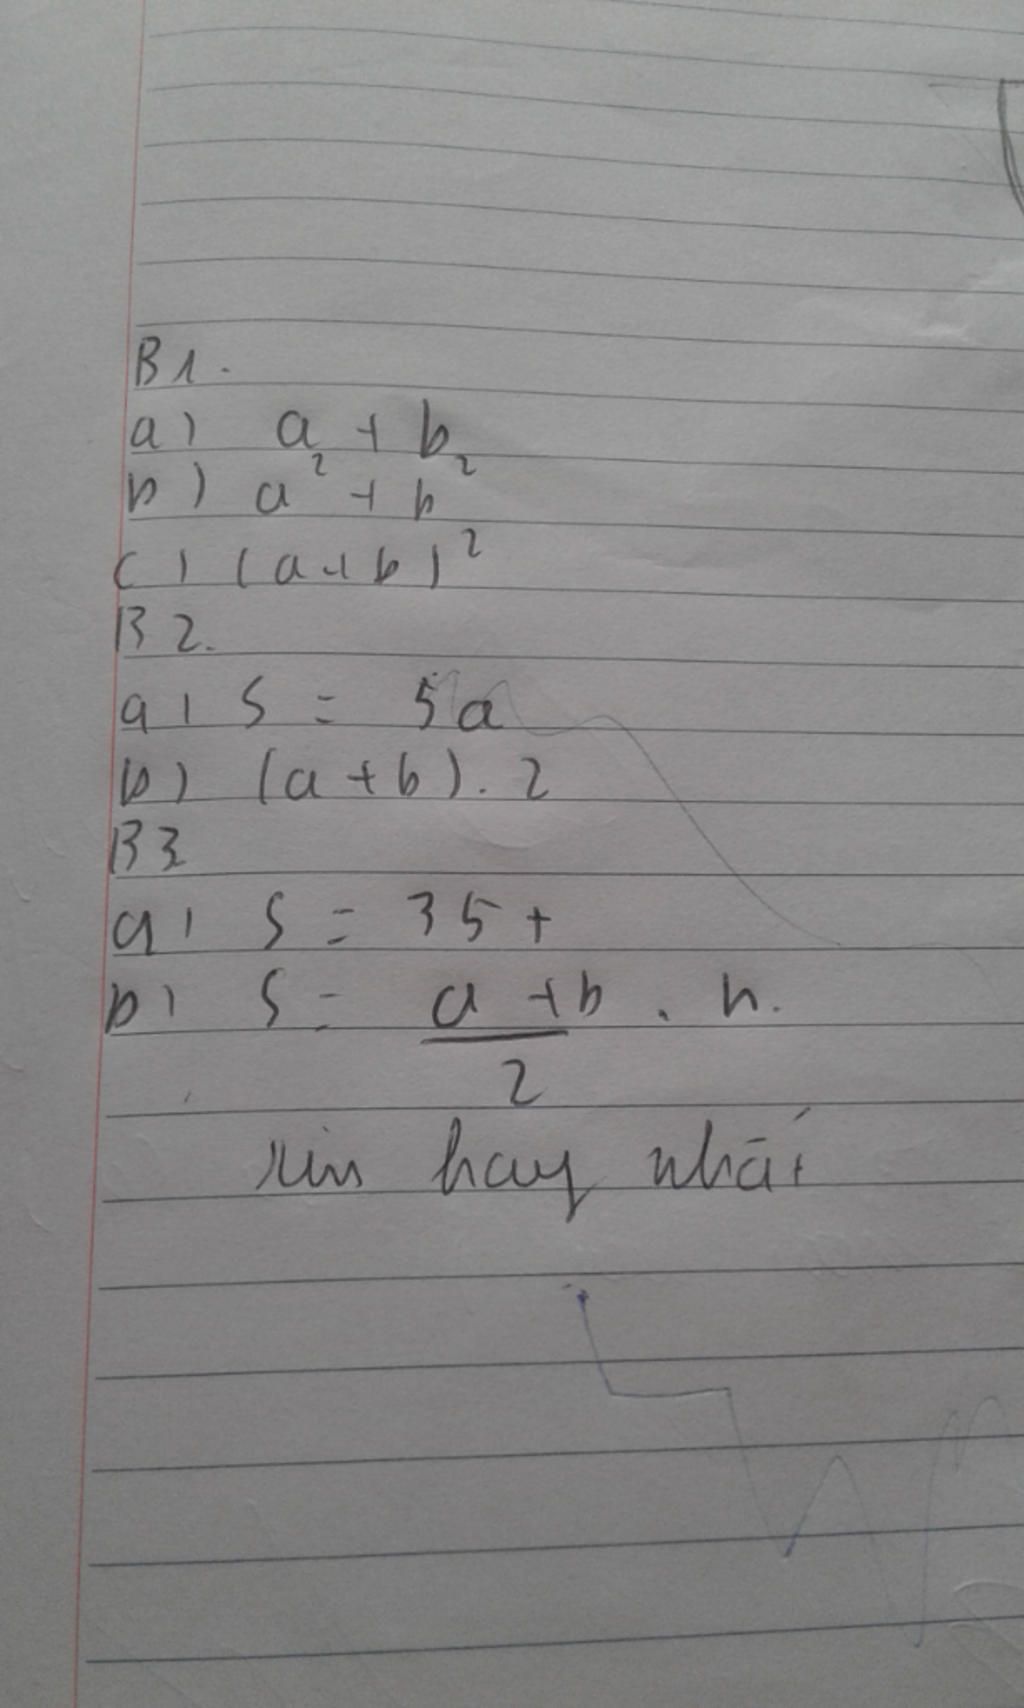 B1.
a) a + b
b) a² + b²
c) (a+b)²
B2.
a) S = 5a
b) (a+b). 2
B3
a) S = 35t
b) S = a+b/2 . h.
xin hay nhất